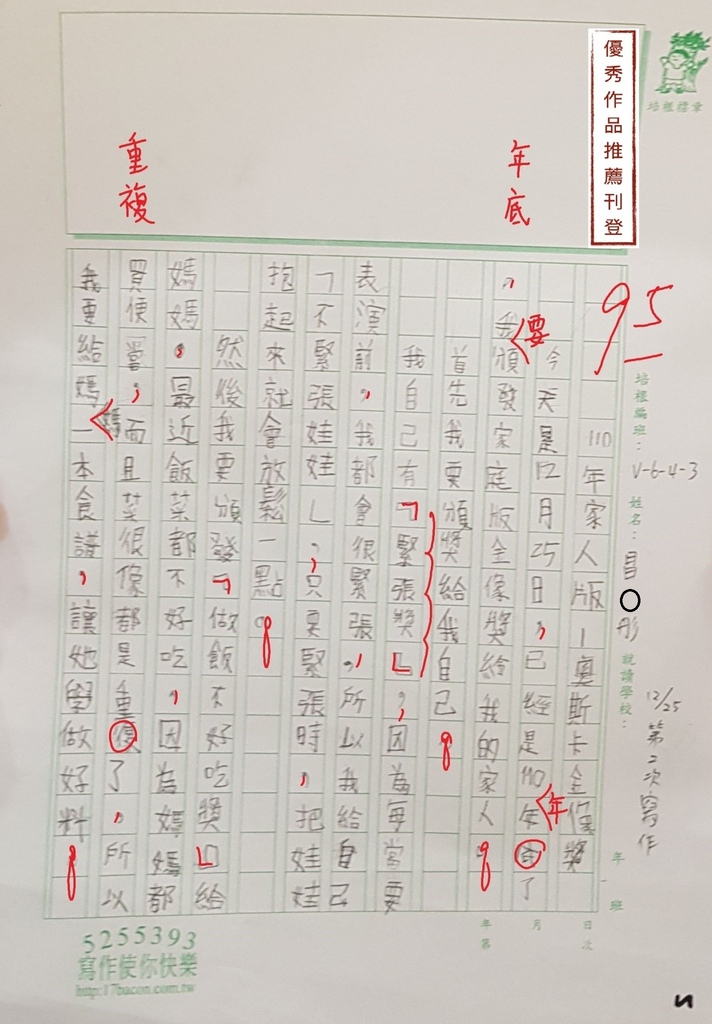 優秀作品推薦刊登
培根標章
年底
重複
95
培根編班：V-6-4-3
姓名：昌○彤
就讀學校：
年 班
12/25 第2次寫作
110年家人版—奧斯卡金像獎
今天是12月25日，已經是110年年了
，我要頒發家庭版金像獎給我的家人。
首先我要頒獎給我自己。
我自己有「緊張獎」，因為每當要
表演前，我都會很緊張，所以我給自己
「不緊張娃娃」，只要緊張時，把娃娃
抱起來就會放鬆一點。
然後我要頒發「做飯不好吃獎」給
媽媽，最近飯菜都不好吃，因為媽媽都
買便當，而且菜很像都是重復了，所以
我要給媽媽一本食譜，讓她學做好料。
年 月 日
第 次
5255393
寫作使你快樂
http://17bacon.com.tw